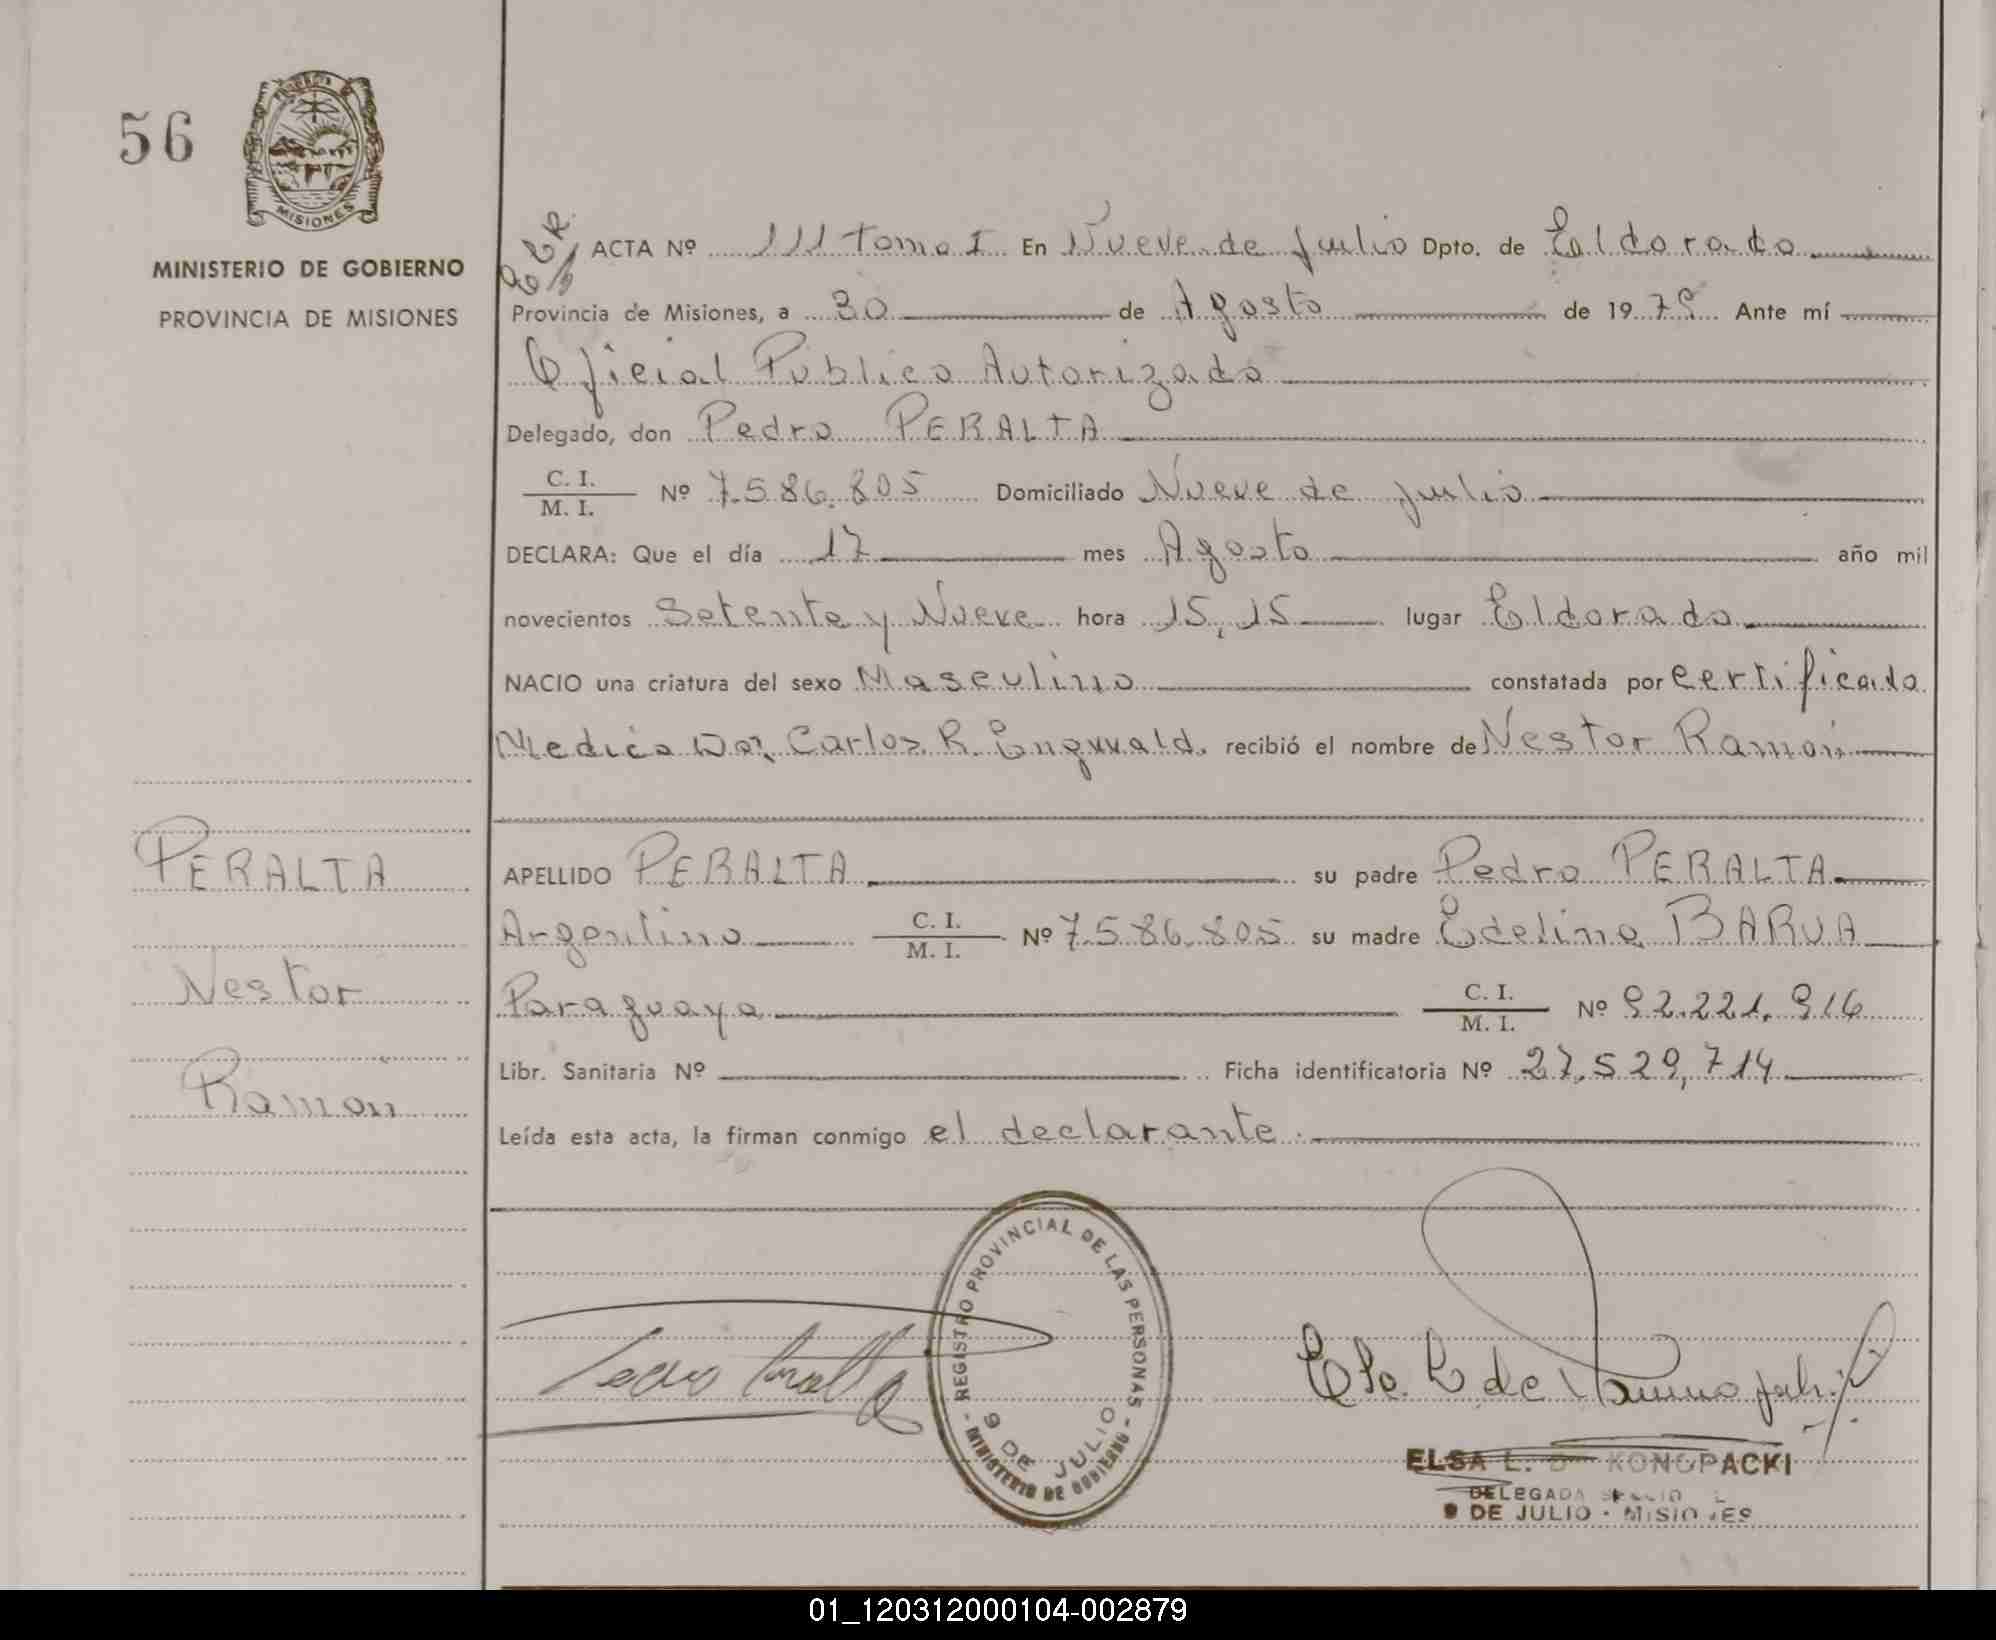 56
MISIONES
MINISTERIO DE GOBIERNO
PROVINCIA DE MISIONES
ACTA Nº 111 tomo I En Nueve de Julio Dpto. de Eldorado
Provincia de Misiones, a 30 de Agosto de 1979 Ante mí
Oficial Publico Autorizado
Delegado, don Pedro PERALTA
C. I.
M. I. Nº 7.586.805 Domiciliado Nueve de julio
DECLARA: Que el día 17 mes Agosto año mil
novecientos Setenta y Nueve hora 15,15 lugar Eldorado
NACIO una criatura del sexo Masculino constatada por certificado
Medico Dor, Carlos R. Engwald. recibió el nombre de Nestor Ramón
PERALTA
Nestor
Ramón
APELLIDO PERALTA su padre Pedro PERALTA
Argentino C. I.
M. I. Nº 7.586.805 su madre Edelina BARUA
Paraguaya C. I.
M. I. Nº 92.221.916
Libr. Sanitaria Nº Ficha identificatoria Nº 27.529,714
Leída esta acta, la firman conmigo el declarante.
REGISTRO PROVINCIAL DE LAS PERSONAS
- MINISTERIO DE GOBIERNO -
9 DE JULIO
ELSA L. D KONOPACKI
DELEGADA
9 DE JULIO - MISIONES
01_120312000104-002879